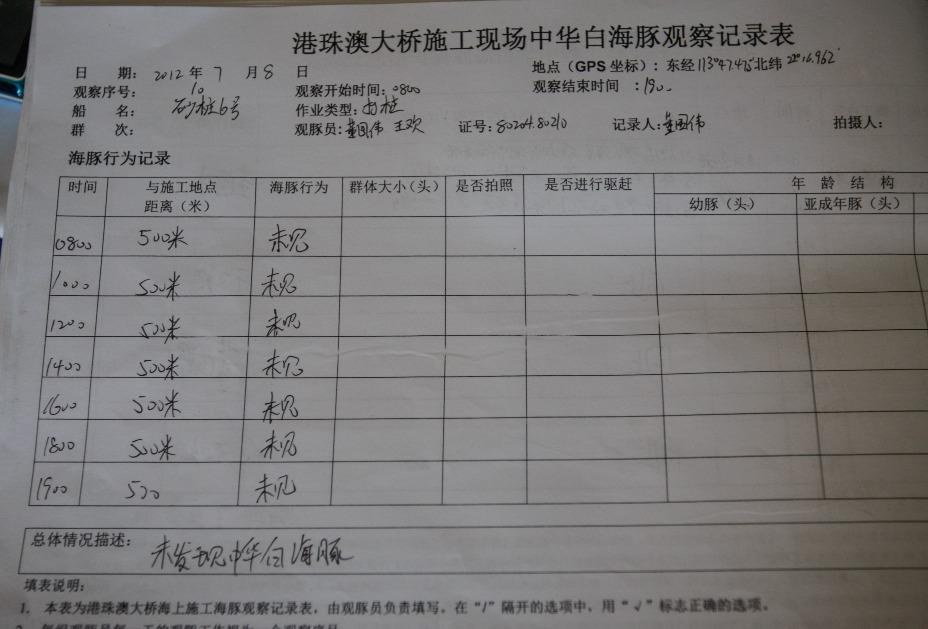 港珠澳大桥施工现场中华白海豚观察记录表
日 期: 2012 年 7 月 8 日 地点（GPS 坐标）: 东经 113°47.475 北纬 22°16.962'
观察序号: 10 观察开始时间: 0800 观察结束时间 : 1900
船 名: 砂桩6号 作业类型: 打桩
群 次: 观豚员: 董国伟 王欢 证号: 80204.80210 记录人: 董国伟 拍摄人:
海豚行为记录
时间 与施工地点距离（米） 海豚行为 群体大小（头） 是否拍照 是否进行驱赶 年 龄 结 构
幼豚（头） 亚成年豚（头）
0800 500米 未见
1000 500米 未见
1200 500米 未见
1400 500米 未见
1600 500米 未见
1800 500米 未见
1900 500 未见
总体情况描述: 未发现中华白海豚
填表说明:
1. 本表为港珠澳大桥海上施工海豚观察记录表，由观豚员负责填写。在“/”隔开的选项中，用“√”标志正确的选项。